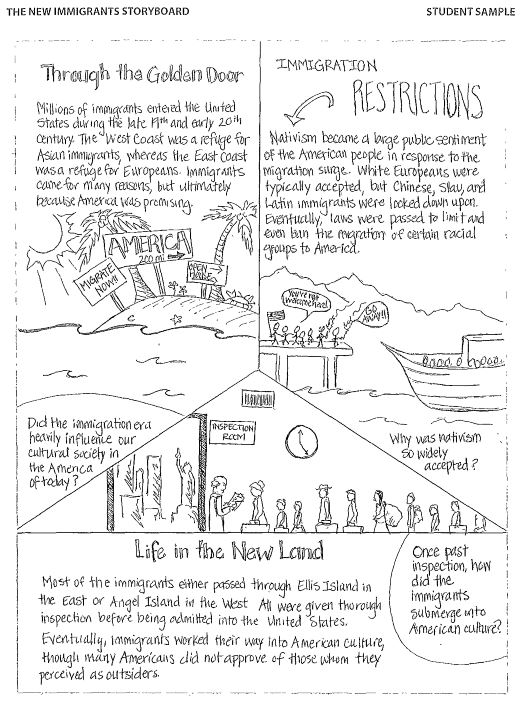 THE NEW IMMIGRANTS STORYBOARD
STUDENT SAMPLE
Through the Golden Door
Millions of immigrants entered the United
States during the late 19th and early 20th
century. The West Coast was a refuge for
Asian immigrants, whereas the East Coast
was a refuge for Europeans. Immigrants
came for many reasons, but ultimately
because America was promising.
AMERICA
200 mi
MIGRATE
NOW!!
OPEN
IMMIGRATION
RESTRICTIONS
Nativism became a large public sentiment
of the American people in response to the
migration surge. White Europeans were
typically accepted, but Chinese, Slav, and
Latin immigrants were looked down upon.
Eventually, laws were passed to limit and
even ban the migration of certain racial
groups to America.
You're not
welcome here!
GO
AWAY!!
Did the immigration era
heavily influence our
cultural society in
the America
of today?
INSPECTION
ROOM
Why was nativism
so widely
accepted?
Life in the New Land
Most of the immigrants either passed through Ellis Island in
the East or Angel Island in the West. All were given thorough
inspection before being admitted into the United States.
Eventually, immigrants worked their way into American culture,
though many Americans did not approve of those whom they
perceived as outsiders.
Once past
inspection, how
did the
immigrants
submerge into
American culture?